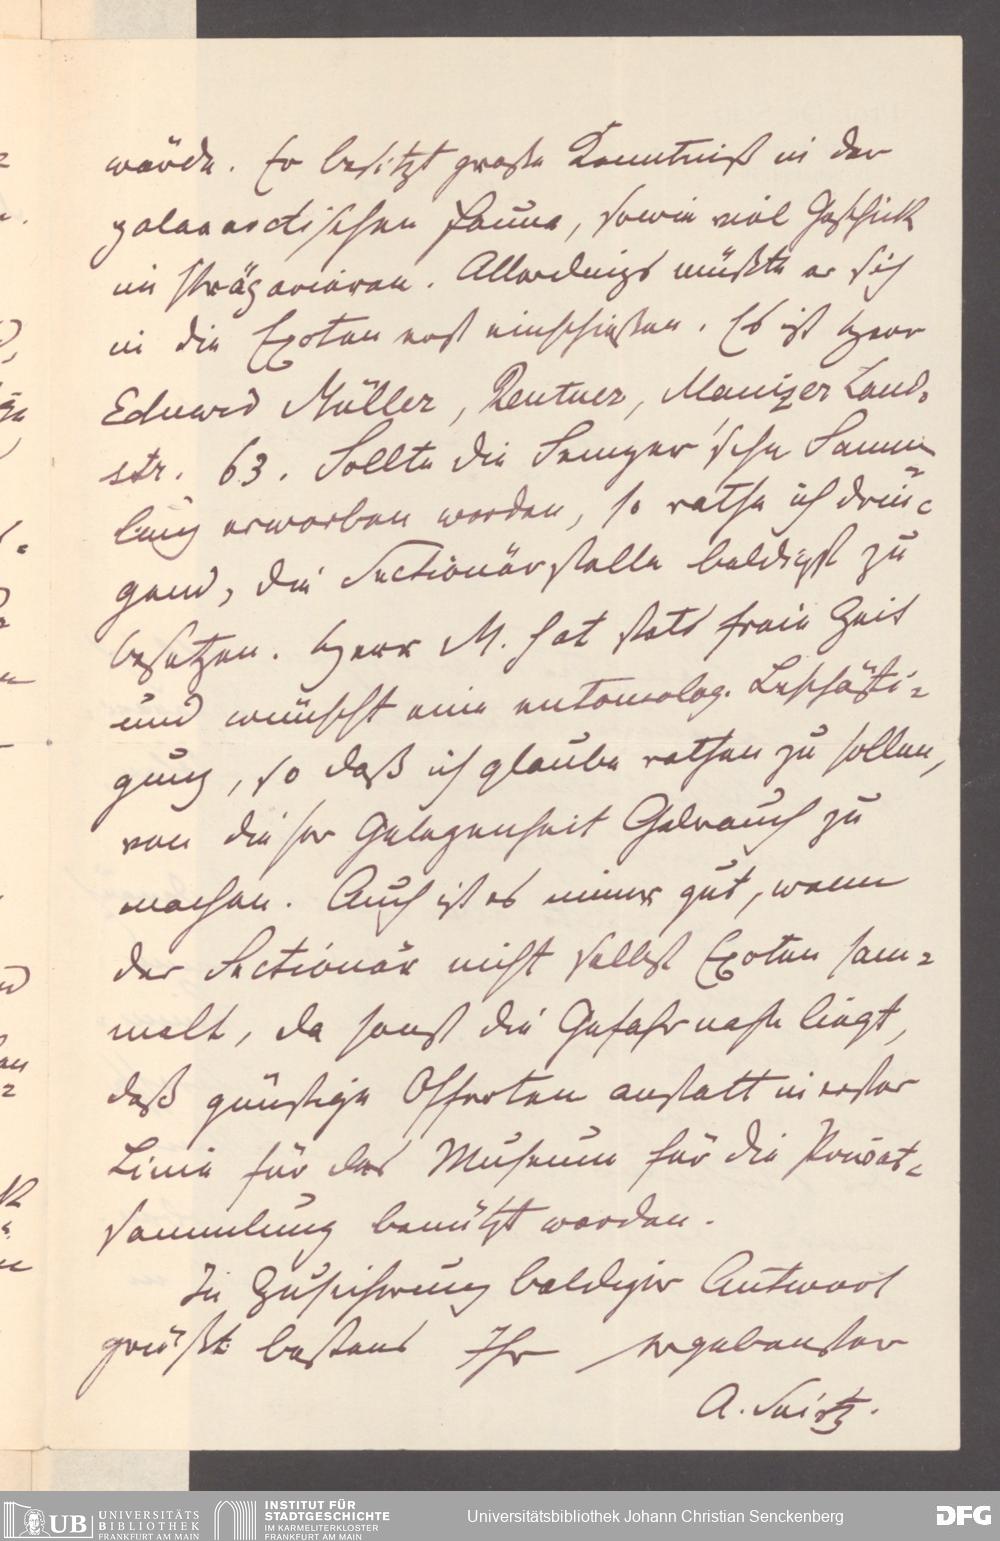 würde. Er besitzt große Kenntniß in der
palaearctischen Fauna, sowie viel Geschick
im Präpariren. Allerdings müßte er sich
in die Exoten erst einschießen. Es ist Herr
Eduard Müller, Rentner, Mainzer Land-
str. 63. Sollte die Semper'sche Samm
lung erworben werden, so rathe ich drin-
gend, die Sectionärstelle baldigst zu
besetzen. Herr M. hat stets freie Zeit
und wünscht eine entomolog. Beschäfti-
gung, so daß ich glaube rathen zu sollen,
von dieser Gelegenheit Gebrauch zu
machen. Auch ist es immer gut, wenn
der Sectionär nicht selbst Exoten sam-
melt, da sonst die Gefahr nahe liegt,
daß günstige Offerten anstatt in erster
Linie für das Museum für die Privat-
sammlung benützt werden.
In Zusicherung baldiger Antwort
grüßt bestens Ihr ergebenster
A. Seitz.
UB UNIVERSITÄTS
BIBLIOTHEK
FRANKFURT AM MAIN
INSTITUT FÜR
STADTGESCHICHTE
IM KARMELITERKLOSTER
FRANKFURT AM MAIN
Universitätsbibliothek Johann Christian Senckenberg
DFG